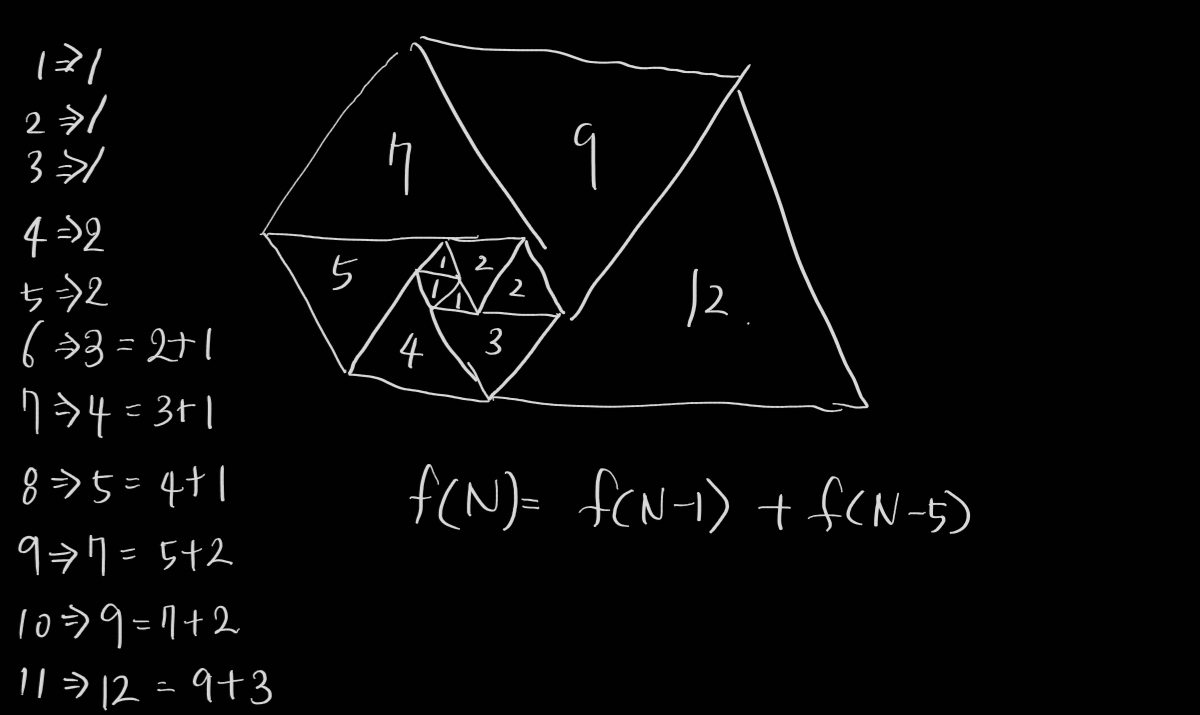 1 ⇒ 1
2 ⇒ 1
3 ⇒ 1
4 ⇒ 2
5 ⇒ 2
6 ⇒ 3 = 2+1
7 ⇒ 4 = 3+1
8 ⇒ 5 = 4+1
9 ⇒ 7 = 5+2
10 ⇒ 9 = 7+2
11 ⇒ 12 = 9+3
7
9
5
1
2
1
1
2
12
4
3
f(N) = f(N-1) + f(N-5)